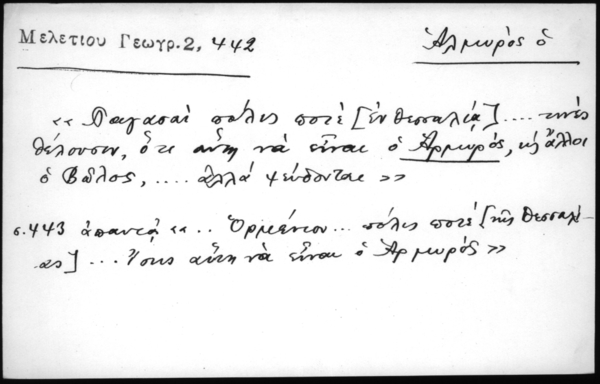 Μελετίου Γεωγρ. 2, 442
Ἁλμυρὸς ὁ
«Παγασαὶ πόλις ποτὲ [ἐν Θεσσαλίᾳ] .... τινὲς
θέλουσιν, ὅτι αὕτη νὰ εἶναι ὁ Ἁρμυρός, κ̀ ἄλλοι
ὁ Βῶλος, .... ἀλλὰ ψεύδονται»
σ. 443 ἀπαντᾷ «.. Ὁρμένιον ... πόλις ποτὲ [τῆς Θεσσαλί-
ας] ... Ἴσως αὕτη νὰ εἶναι ὁ Ἁρμυρός»